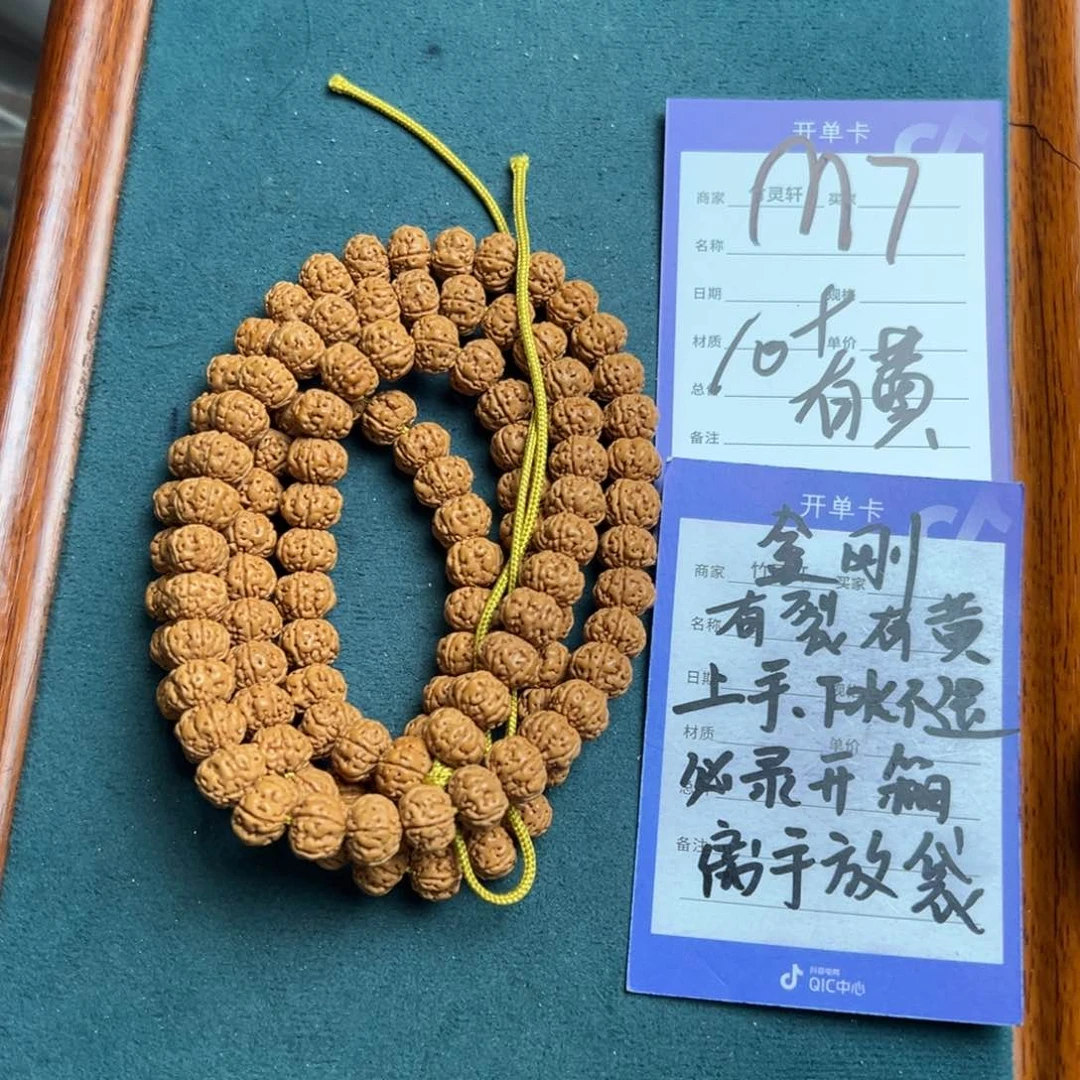 开单卡
M7
商家 竹灵轩 买家
名称
日期 规格
材质 单价
10+
有黄
备注
开单卡
金刚
商家 买家
有裂有黄
名称
日期
上手、下水不退
材质 单价
必录开箱
备注
离手放袋
抖音电商
QIC中心